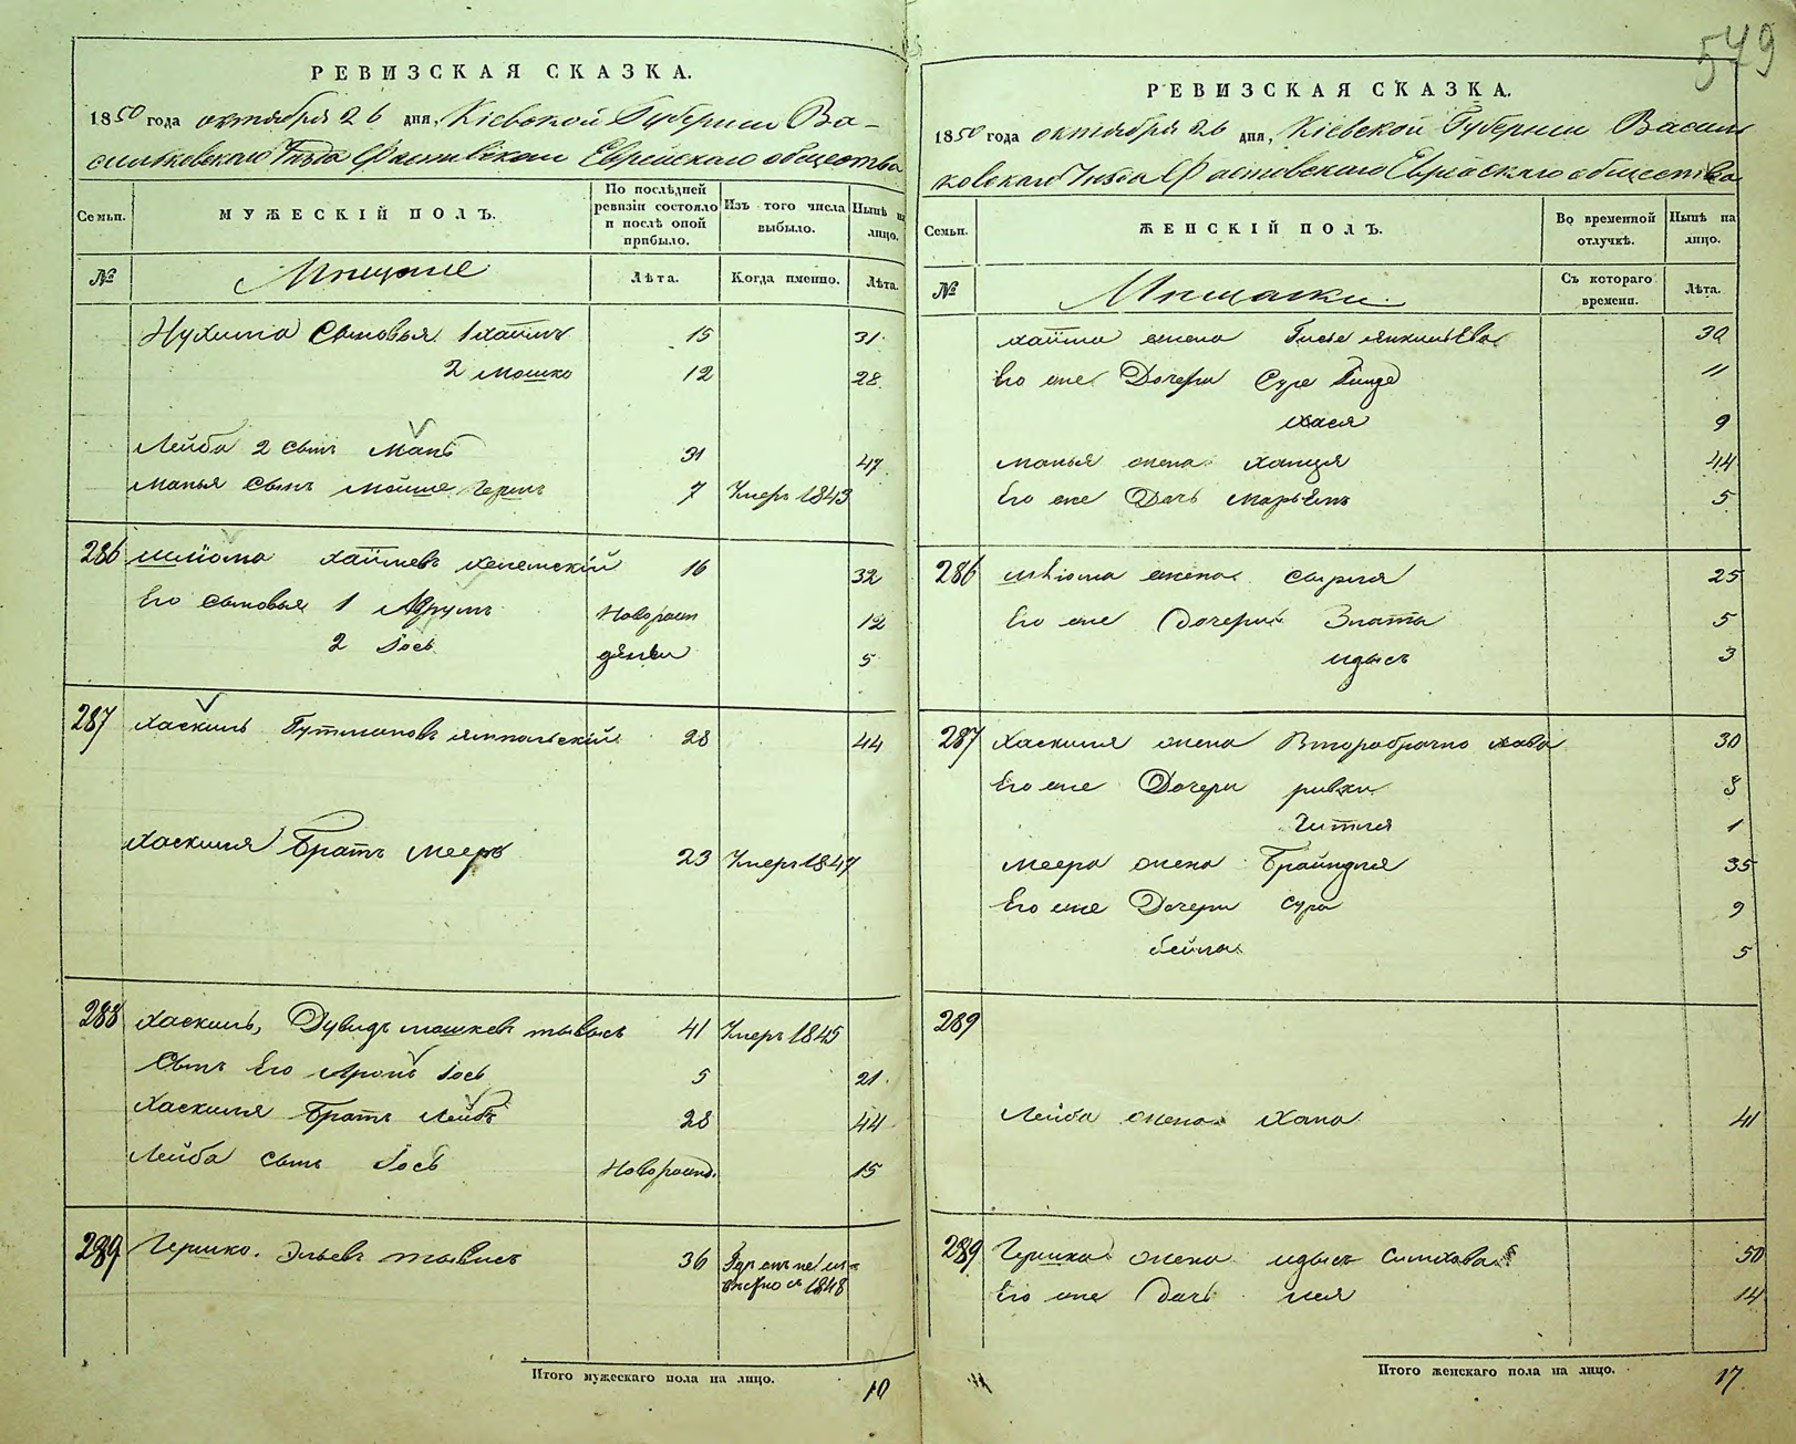 549
РЕВИЗСКАЯ СКАЗКА.
1850 года октября 26 дня, Кіевской Губерніи Ва-
сильковскаго Уѣзда Фастовскаго Еврейскаго общества
Семьи.
МУЖЕСКІЙ ПОЛЪ.
По послѣдней ревизіи состояло и послѣ оной прибыло.
Изъ того числа выбыло.
Нынѣ на лицо.
№
Мещане
Лѣта.
Когда именно.
Лѣта.
Нухима Сыновья 1 Хаимъ 15 31
2 Мошко 12 28
Лейба 2 сынъ Мань 31 47
Манья сынъ Мойше Гершъ 7 Умеръ 1843
286 Шліома Хаимовъ 16 32
Его сыновья 1 Аврумъ Новорож 12
2 Іось денни 5
287 Хаскиль Гутмановъ Ямпольскій 28 44
Хаскиля Братъ Мееръ 23 Умеръ 1847
288 Хаскиль, Дувидъ Мошковъ Тывысъ 41 Умеръ 1845
Сынъ Его Аронъ Іось 5 21
Хаскиля Братъ Лейбъ 28 44
Лейба сынъ Іось Новорожд. 15
289 Гершко Эльевъ Тывисъ 36 1848
Итого мужескаго пола на лицо. 10
РЕВИЗСКАЯ СКАЗКА.
1850 года октября 26 дня, Кіевской Губерніи Василь
ковскаго Уѣзда Фастовскаго Еврейскаго общества
Семьи.
ЖЕНСКІЙ ПОЛЪ.
Во временной отлучкѣ.
Нынѣ на лицо.
№
Мещанки.
Съ котораго времени.
Лѣта.
Хаима жена Янкильева 30
Его же Дочери Сура 11
Хася 9
Манья жена 44
Его же Дочь Марьемъ 5
286 Шліома жена Сырля 25
Его же Дочери Злата 5
Идысъ 3
287 Хаскиля жена Второбрачно Хава 30
Его же Дочери Ривка 3
Гитля 1
Меера жена Брайндля 35
Его же Дочери Сура 9
Бейла 5
289
Лейба жена Хана 41
289 Гершка жена Идысъ Симхова 50
Его же Дочь Лея 14
Итого женскаго пола на лицо. 17